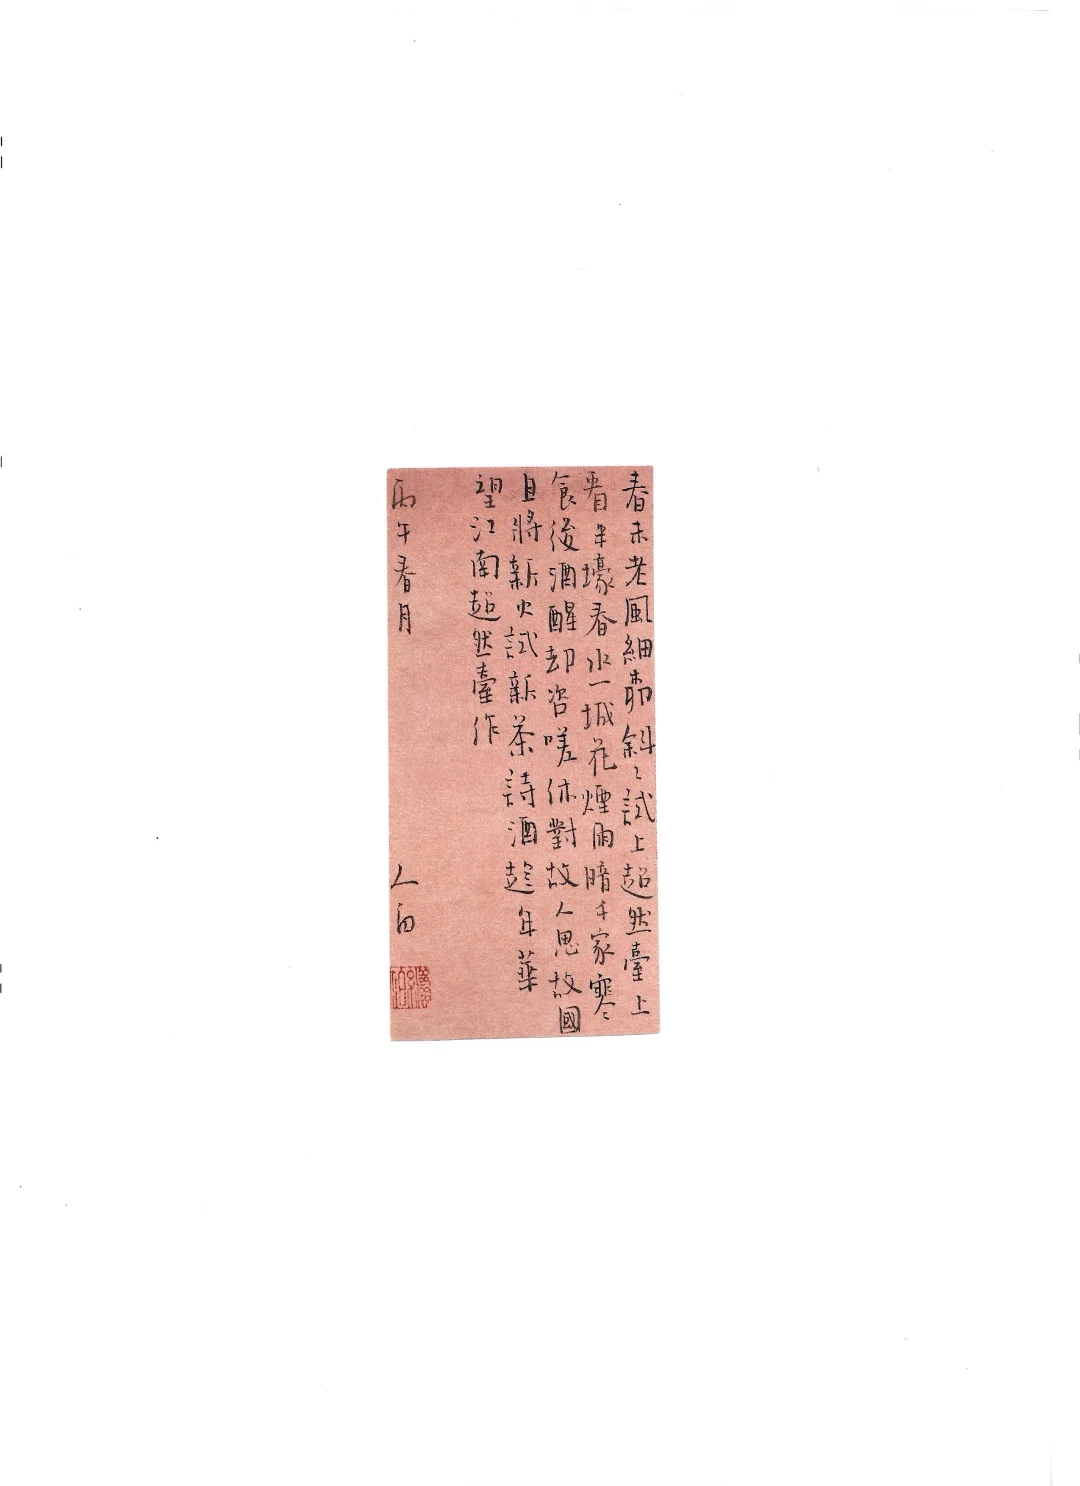 春未老風細柳斜〻試上超然臺上
看半壕春水一城花煙雨暗千家寒
食後酒醒却咨嗟休對故人思故國
且將新火試新茶詩酒趁年華
望江南超然臺作
丙午春月
人